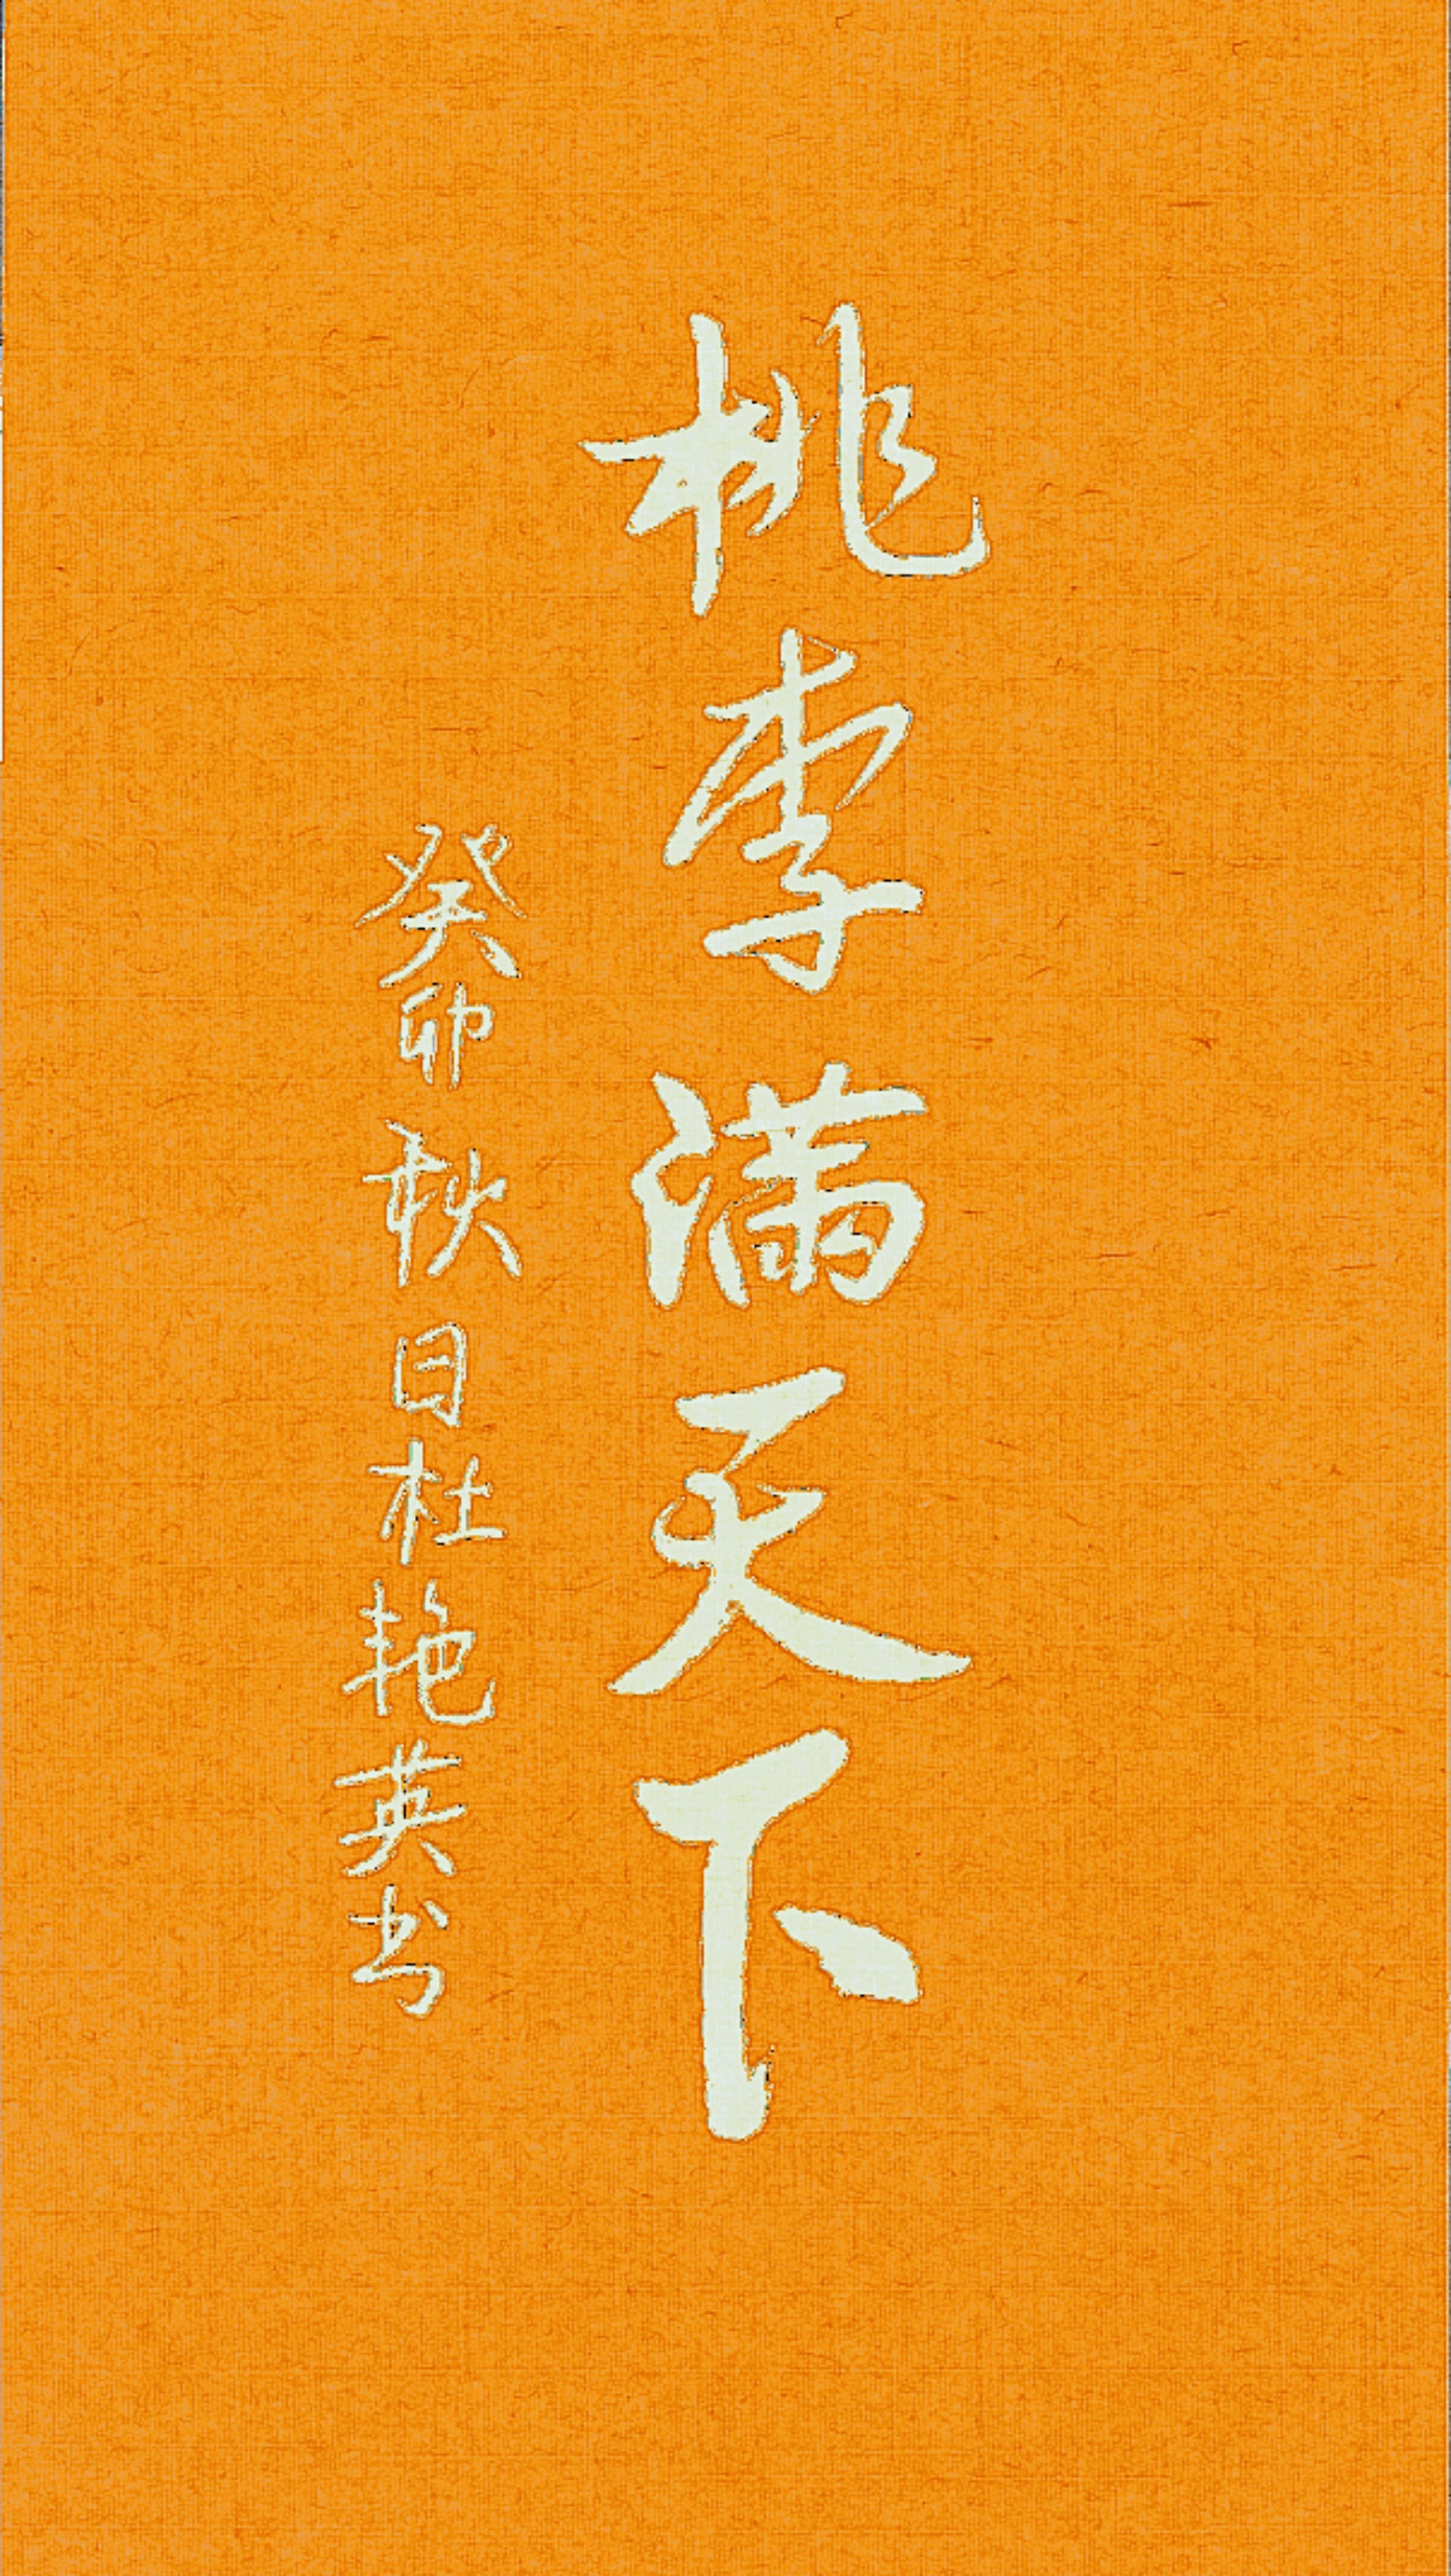 桃李满天下
癸卯秋日杜艳英书